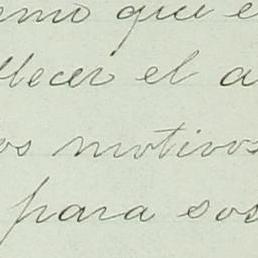 smo que e
llecer el a
os motivos
para sos